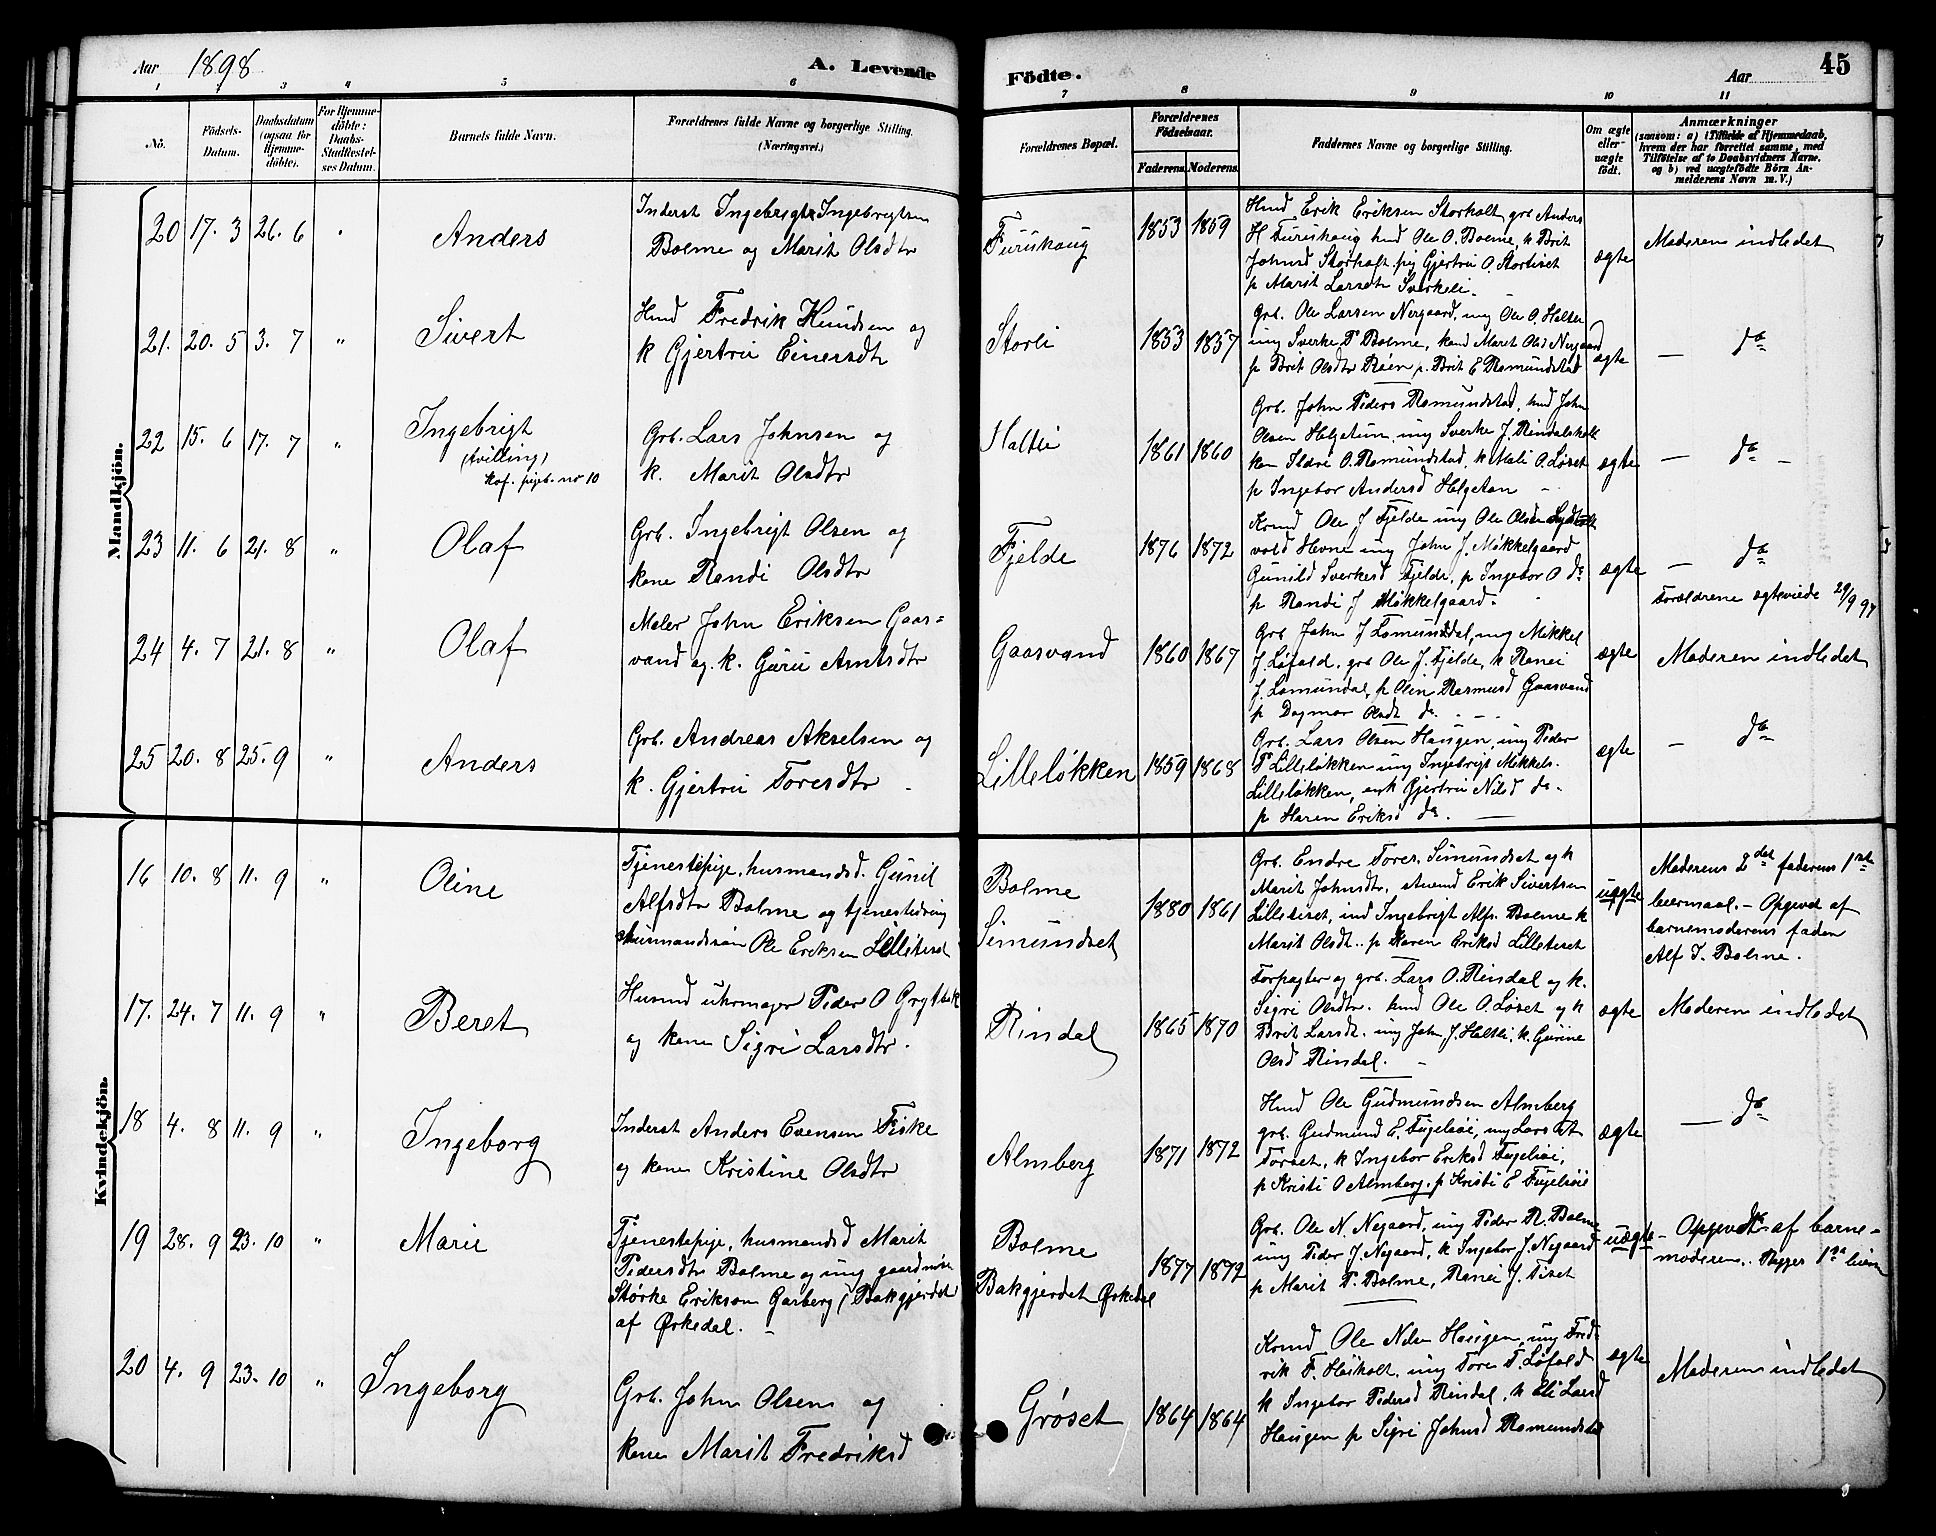 Aar 1898 A. Levende Födte. Aar 45
1 2 3 4 5 6 7 8 9 10 11
No. Födsels-Datum. Daabsdatum (ogsaa for Hjemmedöbte). For Hjemmedöbte: Daabs-Stadfæstelses Datum. Barnets fulde Navn. Forældrenes fulde Navne og borgerlige Stilling. (Næringsvei.) Forældrenes Bopæl. Forældrenes Födselsaar. Faderens. Moderens. Faddernes Navne og borgerlige Stilling. Om ægte eller uægte födt. Anmærkninger (saasom: a) i Tilfælde af Hjemmedaab, hvem der har forrettet samme, med Tilföielse af to Daabsvidners Navne. og b) ved uægtefödte Börn Anmelderens Navn m. V.)
Mandkjön.
20 17. 3 26. 6 " Anders
Inderst Ingebrigt Ingebrigtsen
Bolme og Marit Olsdtr
Furuhaug 1853 1859
Hmd Erik Eriksen Storholt, grb Anders
H Furuhaug hmd Ole O. Bolme, k Brit
Johnsd Storholt, pig Gjertru O. Stortiset
p Marit Larsdtr Sverkeli.
ægte Moderen indledet
21. 20. 5 3. 7 " Sivert
Hmd Fredrik Knudsen og
k Gjertru Einersdtr
Storli 1853 1857
Grb. Ole Larsen Nergaard, ung Ole O. Halter
ung Sverke P Bolme, kand Maret Ols Nergaard
p Brit Olsdtr Röen, p. Brit E Romundstad
ægte — do
22 15. 6 17. 7 " Ingebrigt
(tvilling)
kof. pigeb. nr 10
Grb. Lars Johnsen og
k. Marit Olsdtr
Haltli 1861 1860
Grb. John Peders Romundstad, hmd John
Olsen Helgetun, ung Sverke J. Rindalsholt
kon Ildri O. Romundstad, k Mali O. Løset
p Ingebor Andersd Helgetun
ægte — do —
23 11. 6 21. 8 " Olaf
Grb. Ingebrigt Olsen og
kone Randi Olsdtr
Fjelde 1876 1872
Kmd Ole J Fjelde ung Ole Olsen
vold Hevne ung John J. Møkkelgaard
Gunild Sverkesd Fjelde, p Ingebor O do
p Randi J Møkkelgaard.
ægte — do
Forældrene ægteviede 29/9 97
24 4. 7 21. 8 " Olaf
Maler John Eriksen Gaas=
vand og k. Guru Arntsdtr
Gaasvand 1860 1867
Grb John J Lomundal, ung Mikkel
J Løfald, grb Ole J. Fjelde, k Ranei
J. Lomundal, p Olin Rasmusd Gaasvand
p Dagmar Olsdt do.
ægte Moderen indledet
25 20. 8 25. 9 " Anders
Grb. Andreas Akselsen og
k. Gjertru Toresdtr
Lilleløkken 1859 1868
Grb. Lars Olsen Haugen, ung Peder
P Lilleløkken ung Ingebrigt Mikkels.
Lilleløkken, enk Gjertru Nilsd do.
p Haren Eriksd do.
ægte — do
Kvindekjön.
16 10. 8 11. 9 " Oline
Tjenestepige, husmandsd. Gunil
Alfsdtr Bolme og tjenestedreng
husmandssøn Ole Eriksen Lilletiset
Bolme
Simundset
1880 1861
Grb. Endre Tores. Simundset og k
Marit Johnsdtr. Anend Erik Sivertsen
Lilletiset, ind Ingebrigt Alfs. Bolme k
Marit Olsdt.. p Karen Eriksd Lilletiset
uægte
Moderens 2det faderens 1ste
leiermaal. — Opgivet af
barnemoderens fader
Alf I. Bolme.
17. 24. 7 11. 9 " Beret
Husmd uhrmager Peder O Grytbak
og kone Sigri Larsdtr.
Rindal 1865 1870
Forpagter og grb. Lars O. Rindal og k.
Sigri Olsdtr. hmd Ole O. Løset og k
Brit Larsdt. ung John J. Haltli, k. Gurine
Olsd Rindal.
ægte Moderen indledet
18 4. 8 11. 9 " Ingeborg
Inderst Anders Evensen Fiske
og kone Kristine Olsdtr
Almberg 1871 1872
Hmd Ole Gudmundsen Almberg
grb. Gudmund E. Fugelsøi, ung Lars A
Torset, k Ingebor Eriksd Fugelsøi,
p Kristi O Almberg, p Kristi E Fugelsøie
ægte — do
19 28. 9 23. 10 " Marie
Tjenestepige, husmandsd Marit
Pedersdtr Bolme og ung gaardmsøn
Størke Erikson Garberg (Bakgjerdet)
af Ørkedal.
Bolme
Bakgjerdet Ørkedal
1877 1872
Grb. Ole N. Negaard, ung Peder R. Bolme
ung Peder J. Negaard, k Ingebor J. Negaard
p Marit P. Bolme, Ranei J. Tiset
uægte
— Opgivet af barne=
moderen. Begges 1ste leierm
20 4. 9 23. 10 " Ingeborg
Grb. John Olsen og
kone Marit Fredriksd
Grøset 1864 1864
Kmd Ole Nilsen Haugen, ung Fred
rik F. Heiholt, ung Tore T. Løfald
k Ingebor Pedersd Rindal, k Eli Larsd
Haugen p Sigri Johnsd Romundstad
ægte Moderen indledet